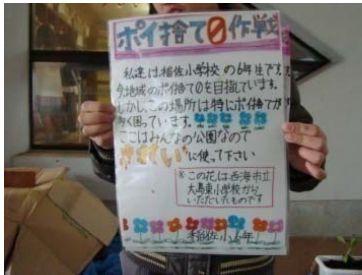 ポイ捨て0作戦
私達は稲佐小学校の6年生です。
今地域のポイ捨て0を目指しています。
しかし、この場所は特にポイ捨てが
多く困っています。
ここはみんなの公園なので
きれいに使って下さい
※この花は西海市立
大島東小学校から
いただいたものです
稲佐小6年